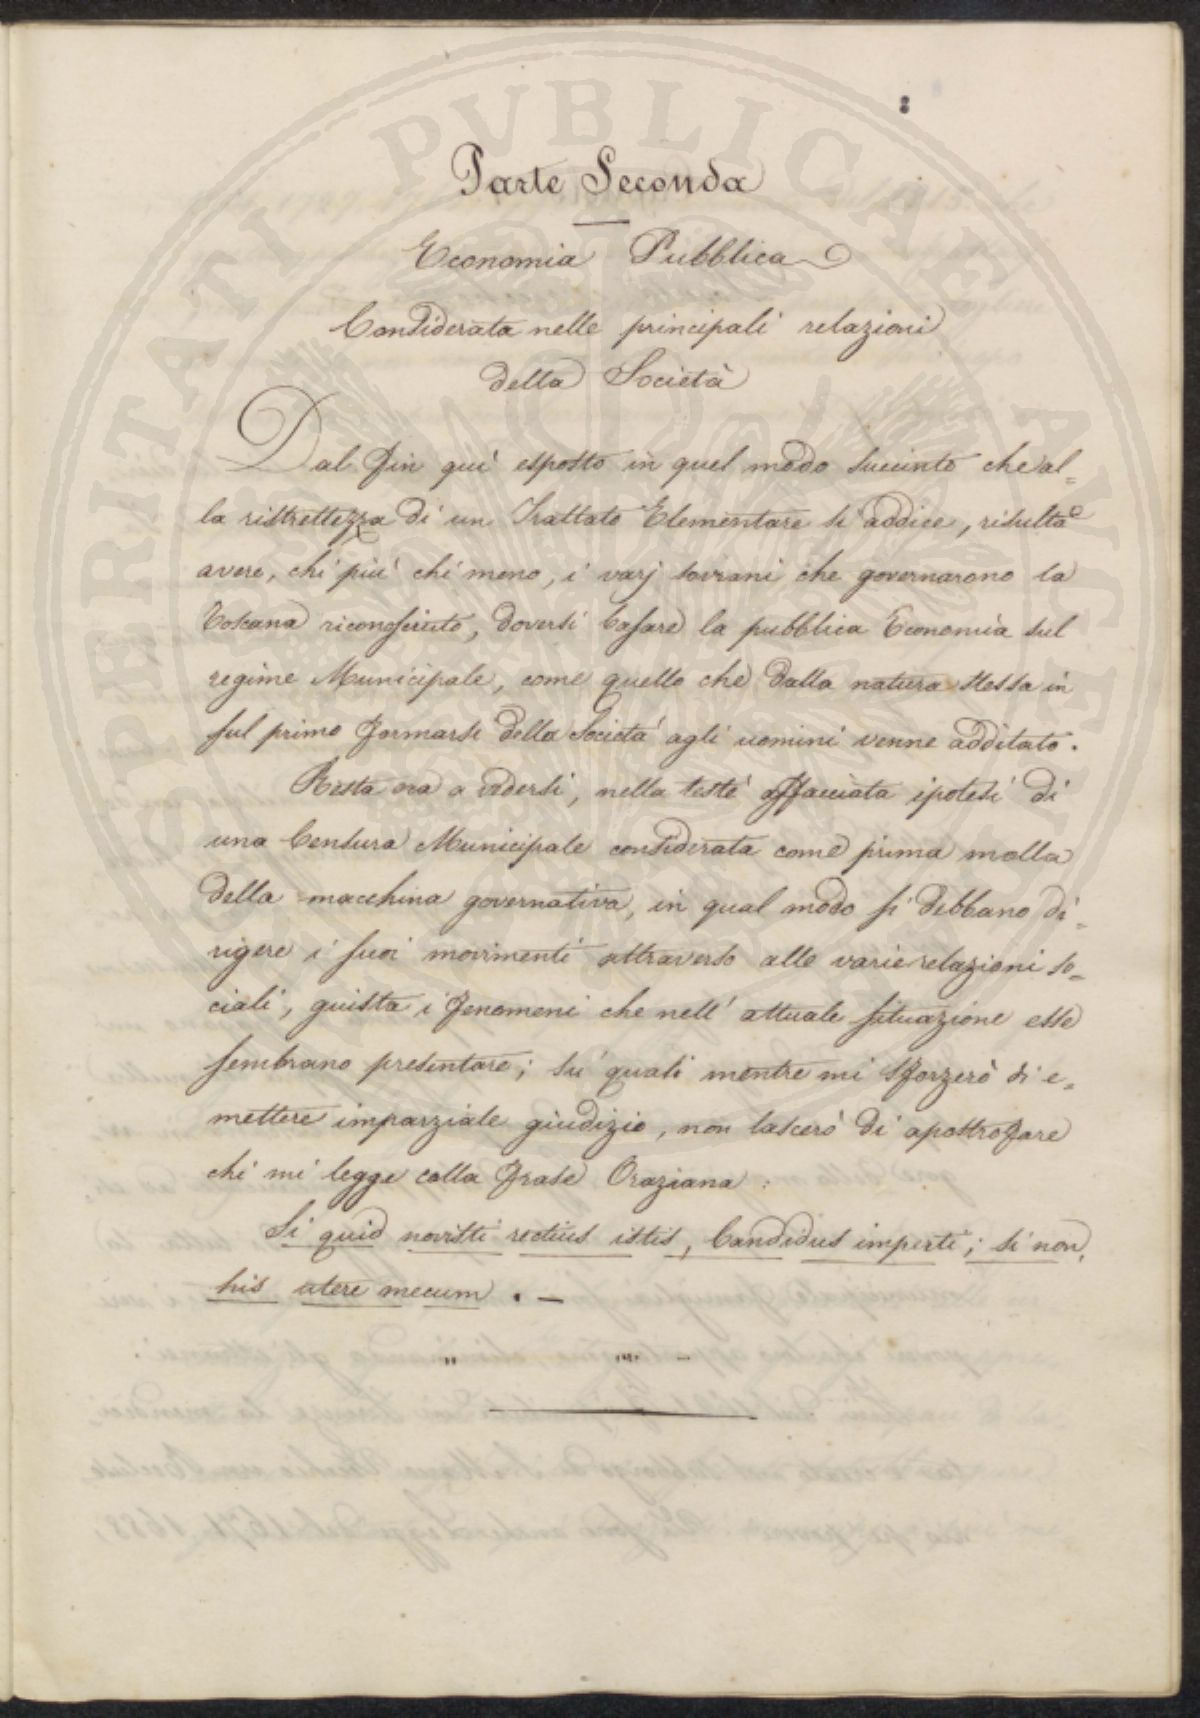 Parte Seconda
Economia Pubblica
Considerata nelle principali relazioni
della Società
Dal fin quì esposto in quel modo succinto che al=
la ristrettezza di un Trattato Elementare si addice, risulta
avere, chi più chi meno, i varj sovrani che governarono la
Toscana riconosciuto, doversi basare la pubblica Economia sul
regime Municipale, come quello che dalla natura stessa in
sul primo formarsi della Società agli uomini venne additato.
Resta ora a vedersi, nella testè affacciata ipotesi di
una Censura Municipale considerata come prima molla
della macchina governativa, in qual modo si debbano di=
rigere i suoi movimenti attraverso alle varie relazioni so=
ciali, guista i fenomeni che nell' attuale situazione esse
sembrano presentare; su' quali mentre mi sforzerò di e=
mettere imparziale giudizio, non lascerò di apostrofare
chi mi legge colla frase Oraziana:
Si quid novisti rectius istis, Candidus imperti; si non,
his utere mecum. —
PROSPERITATI PUBLICAE AUGENDAE